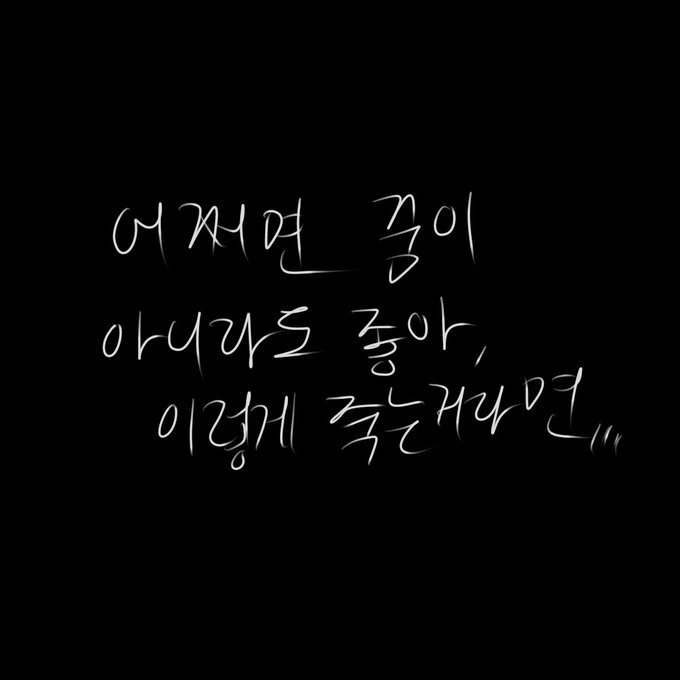 어쩌면 꿈이
아니라도 좋아,
이렇게 죽는거라면,,,